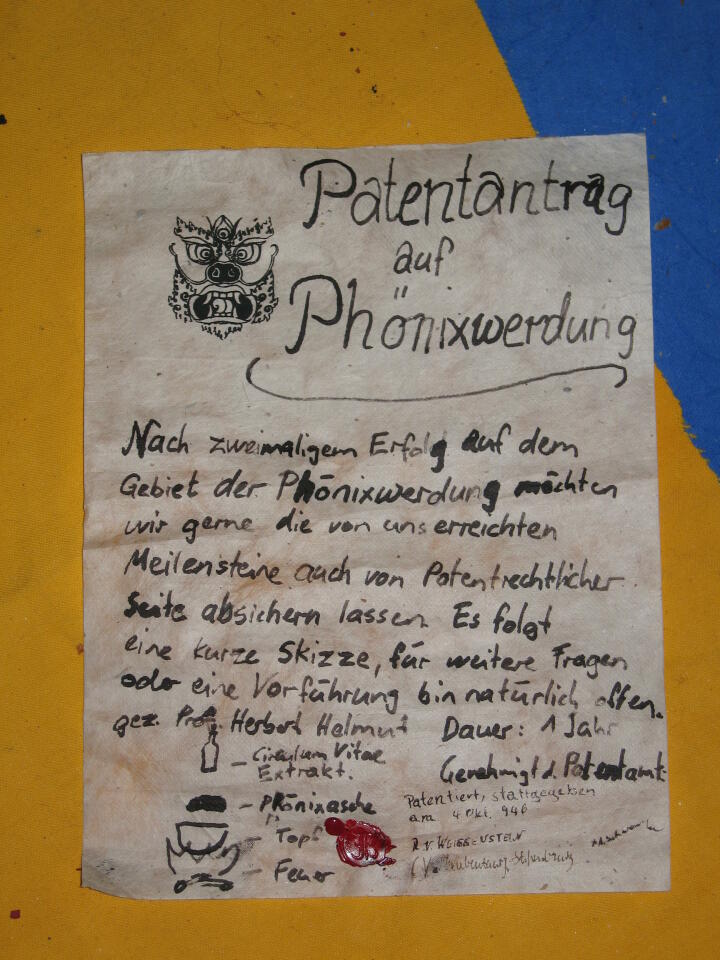 Patentantrag
auf
Phönixwerdung
Nach zweimaligem Erfolg auf dem
Gebiet der Phönixwerdung möchten
wir gerne die von uns erreichten
Meilensteine auch von Patentrechtlicher
Seite absichern lassen. Es folgt
eine kurze Skizze, für weitere Fragen
oder eine Vorführung bin natürlich offen.
gez. Prof. Herbert Helmut
Dauer: 1 Jahr
Circulum Vitae
Extrakt.
Genehmigt d. Patentamt
Phönixasche
Patentiert, stattgegeben
am 4 Okt. 946
Topf
R.V. WEISSENSTEIN
Feuer